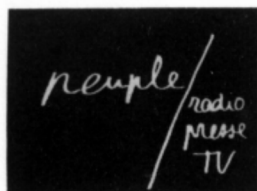 peuple/
radio
presse
TV